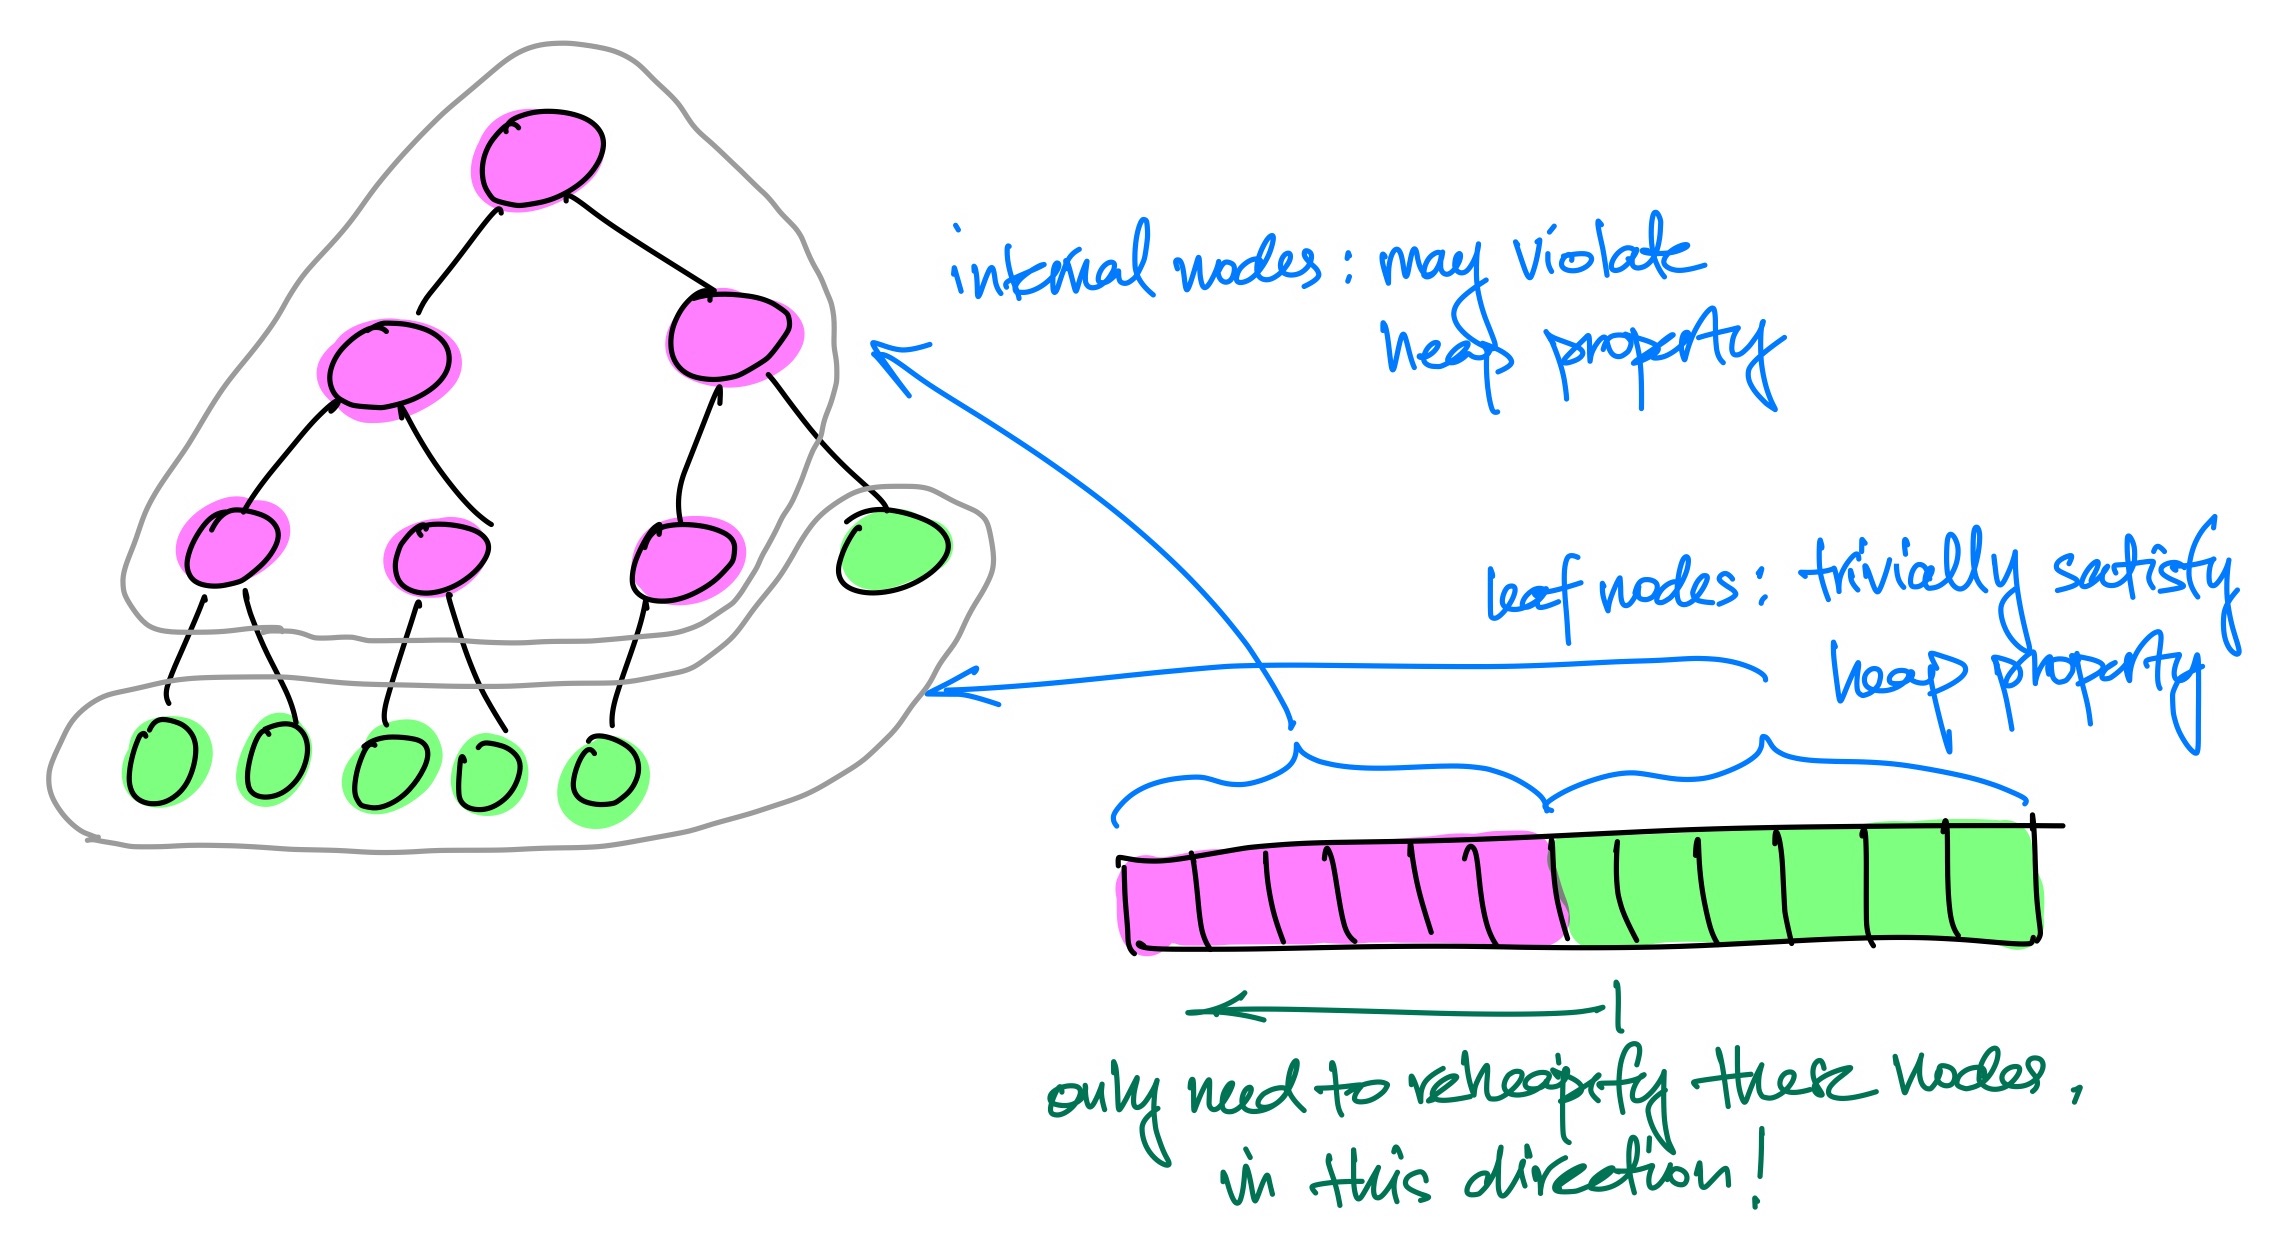 internal nodes: may violate
heap property
leaf nodes: trivially satisfy
heap property
only need to reheapify these nodes,
in this direction!